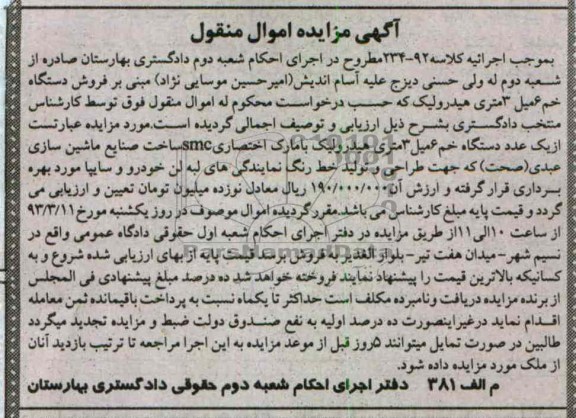 آگهی مزایده اموال منقول
بموجب اجرائیه کلاسه۹۲-۲۳۴مطروح در اجرای احکام شعبه دوم دادگستری بهارستان صادره از
شعبه دوم له ولی حسنی دیزج علیه آسام اندیش(امیرحسین موسایی نژاد) مبنی بر فروش دستگاه
خم۶میل ۳متری هیدرولیک که حسب درخواست محکوم له اموال منقول فوق توسط کارشناس
منتخب دادگستری بشرح ذیل ارزیابی و توصیف اجمالی گردیده است.مورد مزایده عبارتست
ازیک عدد دستگاه خم۶میل۳متری هیدرولیک بامارک اختصاریsmcساخت صنایع ماشین سازی
عبدی(صحت)که جهت طراحی و تولید خط رنگ نمایندگی های لبه لن خودرو و سایپا مورد بهره
برداری قرار گرفته و ارزش آن۱۹۰/۰۰۰/۰۰۰ ریال معادل نوزده میلیون تومان تعیین و ارزیابی می
گردد و قیمت پایه مبلغ کارشناس می باشد.مقرر گردیده اموال موصوف در روز یکشنبه مورخ۹۳/۳/۱۱
از ساعت ۱۰الی۱۱از طریق مزایده در دفتر اجرای احکام شعبه اول حقوقی دادگاه عمومی واقع در
نسیم شهر-میدان هفت تیر-بلوار الغدیر به فروش برسد قیمت پایه از بهای ارزیابی شده شروع و به
کسانیکه بالاترین قیمت را پیشنهاد نمایند فروخته خواهد شد ده درصد مبلغ پیشنهادی فی المجلس
از برنده مزایده دریافت ونامبرده مکلف است حداکثر تا یکماه نسبت به پرداخت باقیمانده ثمن معامله
اقدام نماید درغیراینصورت ده درصد اولیه به نفع صندوق دولت ضبط و مزایده تجدید میگردد
طالبین در صورت تمایل میتوانند ۵روز قبل از موعد مزایده به این اجرا مراجعه تا ترتیب بازدید آنان
از ملک مورد مزایده داده شود.
م الف ۳۸۱ دفتر اجرای احکام شعبه دوم حقوقی دادگستری بهارستان